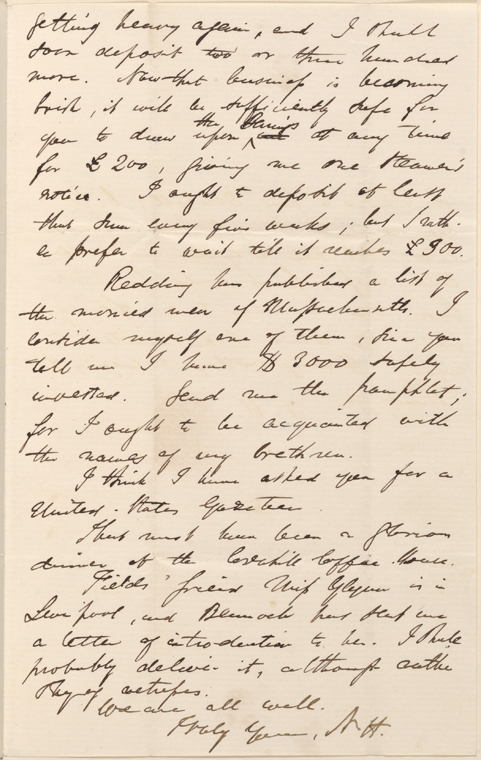 getting heavy again, and I shall
soon deposit two or three hundred
more. Now that business is becoming
brisk, it will be sufficiently safe for
you to draw upon the Barings at any time
for £200, giving me one steamer's
notice. I ought to deposit at least
that sum every five weeks; but I rath-
er prefer to wait till it reaches £300.
Redding has published a list of
the monied men of Massachusetts. I
consider myself one of them, since you
tell me I have $3000 safely
invested. Send me the pamphlet;
for I ought to be acquainted with
the names of my brethren.
I think I have asked you for a
United-States Gazeteer.
That must have been a glorious
dinner at the Cornhill Coffee-House.
Fields' friend Miss Glynn is in
Liverpool, and Bennoch has sent me
a letter of introduction to her. I shall
probably deliver it, although
shy of actresses.
We are all well.
Truly Yours, N. H.